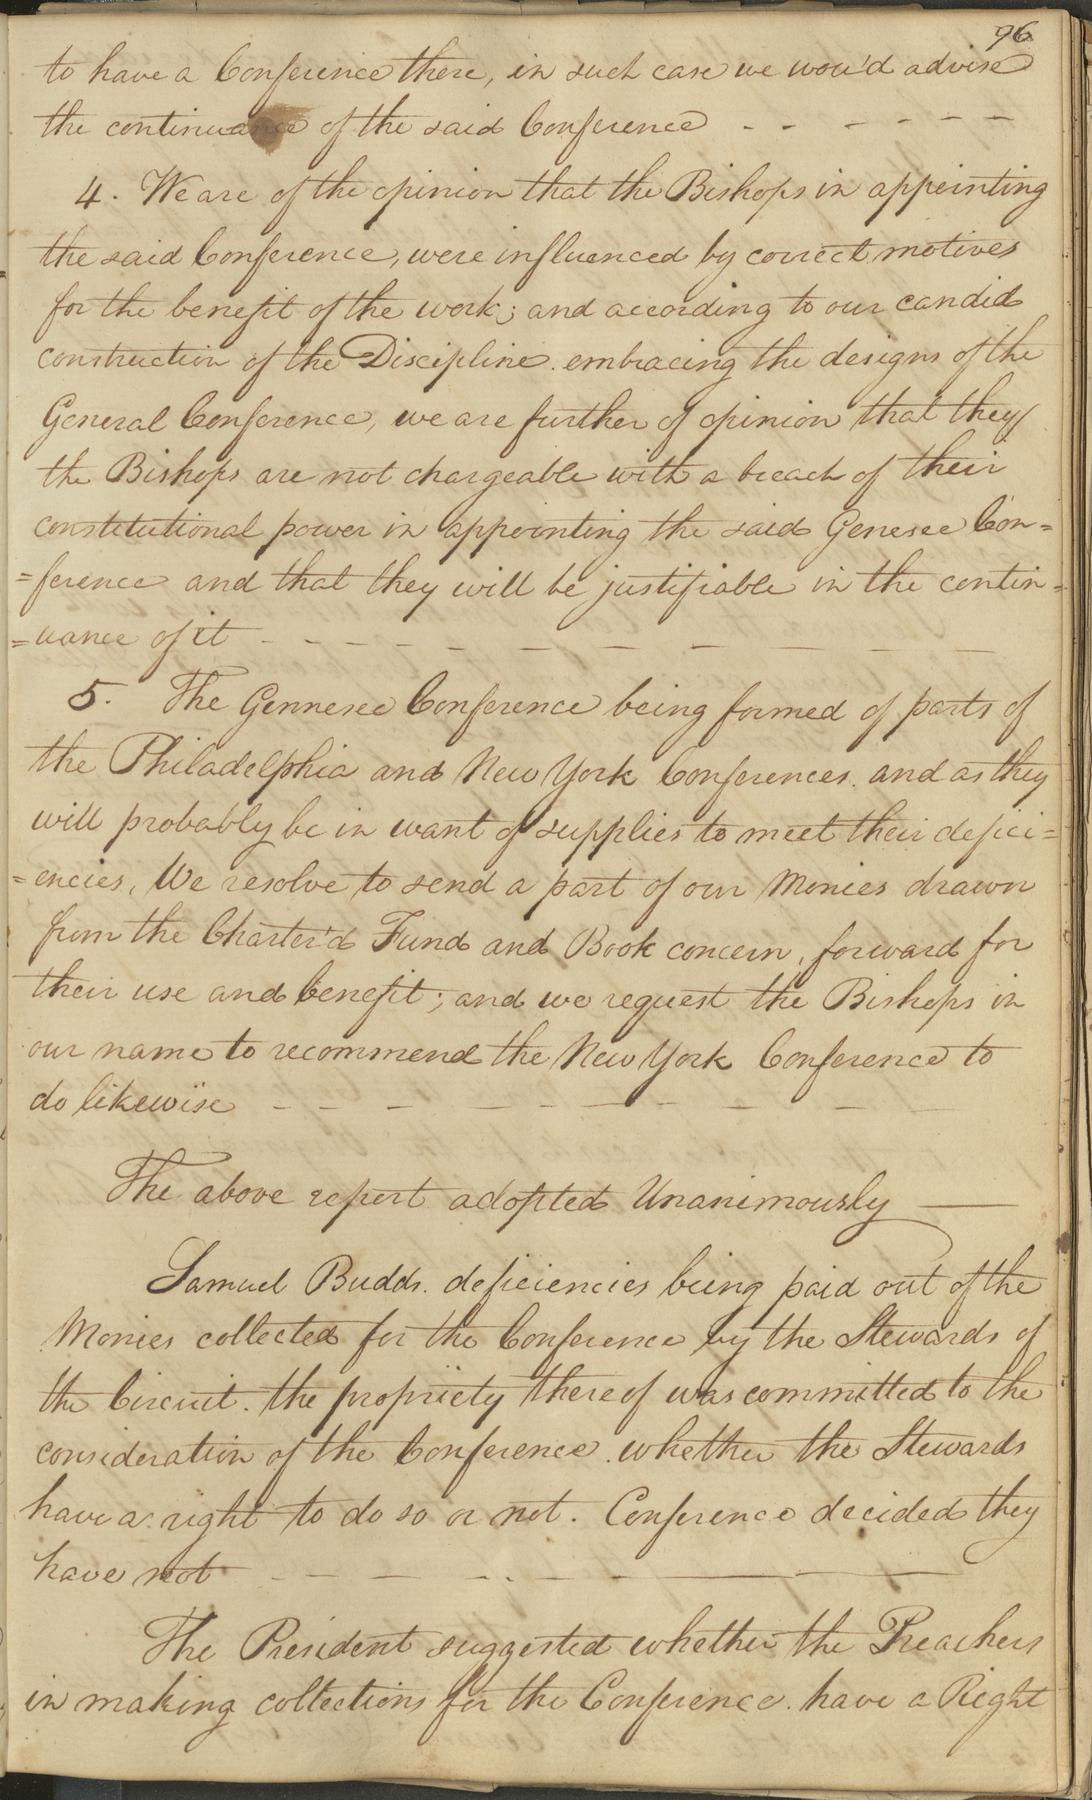 96
to have a Conference there, in such case we wou'd advise
the continuance of the said Conference - - - - - - -
4. We are of the opinion that the Bishops in appointing
the said Conference, were influenced by correct motives
for the benefit of the work; and according to our candid
construction of the Discipline. embracing the designs of the
General Conference, we are further of opinion that they
the Bishops are not chargeable with a breach of their
constitutional power in appointing the said Genesee Con=
=ference and that they will be justifiable in the contin=
=uance of it - - - - - - - - - - -
5. The Gennesee Conference being formed of parts of
the Philadelphia and New York Conferences. and as they
will probably be in want of supplies to meet their defici=
=encies, We resolve to send a part of our Monies drawn
from the Charter'd Fund and Book concern, forward for
their use and benefit; and we request the Bishops in
our name to recommend the New York Conference to
do likewise - - - - - - - - - -
The above report adopted Unanimously —
Samuel Budds. deficiencies being paid out of the
Monies collected for the Conference by the Stewards of
the Circuit. the propriety thereof was committed to the
consideration of the Conference. whether the Stewards
have a right to do so or not. Conference decided they
have not - - - - - - - - -
The President suggested whether the Preachers
in making collections for the Conference. have a Right